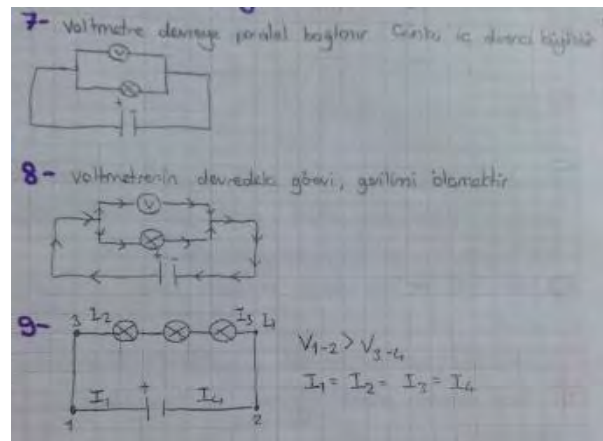 7- Voltmetre devreye paralel bağlanır Çünkü iç direnci büyüktür
V
+ -
8- Voltmetrenin devredeki görevi, gerilimi ölçmektir
V
+ -
9- 3 I2 I3 4
V1-2 > V3-4
I1 = I2 = I3 = I4
I1 + I4
1 2